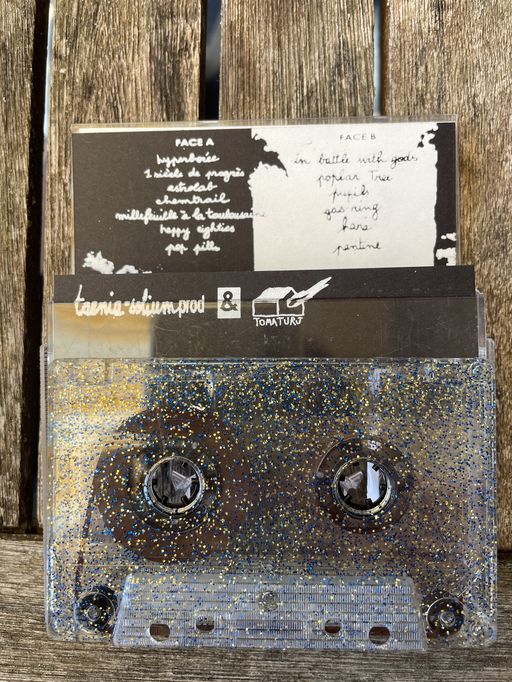 FACE A
hyperborée
1 siècle de progrès
astrolab
chemtrail
millefeuille à la toulousaine
happy eighties
pop pills
FACE B
in battle with gods
poplar Tree
pupils
gas-ring
hans
pantine
taenia-solium prod & TOMATURJ